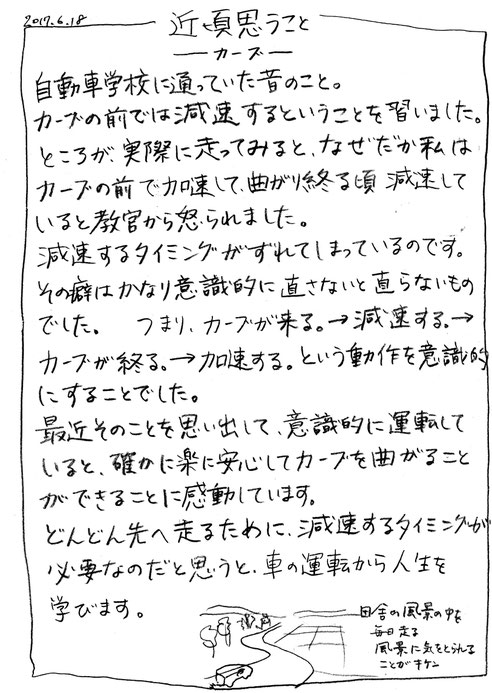 2017.6.18
近頃思うこと
―カーブ―
自動車学校に通っていた昔のこと。
カーブの前では減速するということを習いました。
ところが、実際に走ってみると、なぜだか私は
カーブの前で加速して、曲がり終る頃 減速して
いると教官から怒られました。
減速するタイミングがずれてしまっているのです。
その癖はかなり意識的に直さないと直らないもの
でした。 つまり、カーブが来る。→減速する。→
カーブが終る。→加速する。という動作を意識的
にすることでした。
最近そのことを思い出して、意識的に運転して
いると、確かに楽に安心してカーブを曲がること
ができることに感動しています。
どんどん先へ走るために、減速するタイミングが
必要なのだと思うと、車の運転から人生を
学びます。
田舎の風景の中を
毎日走る
風景に気をとられる
ことがキケン